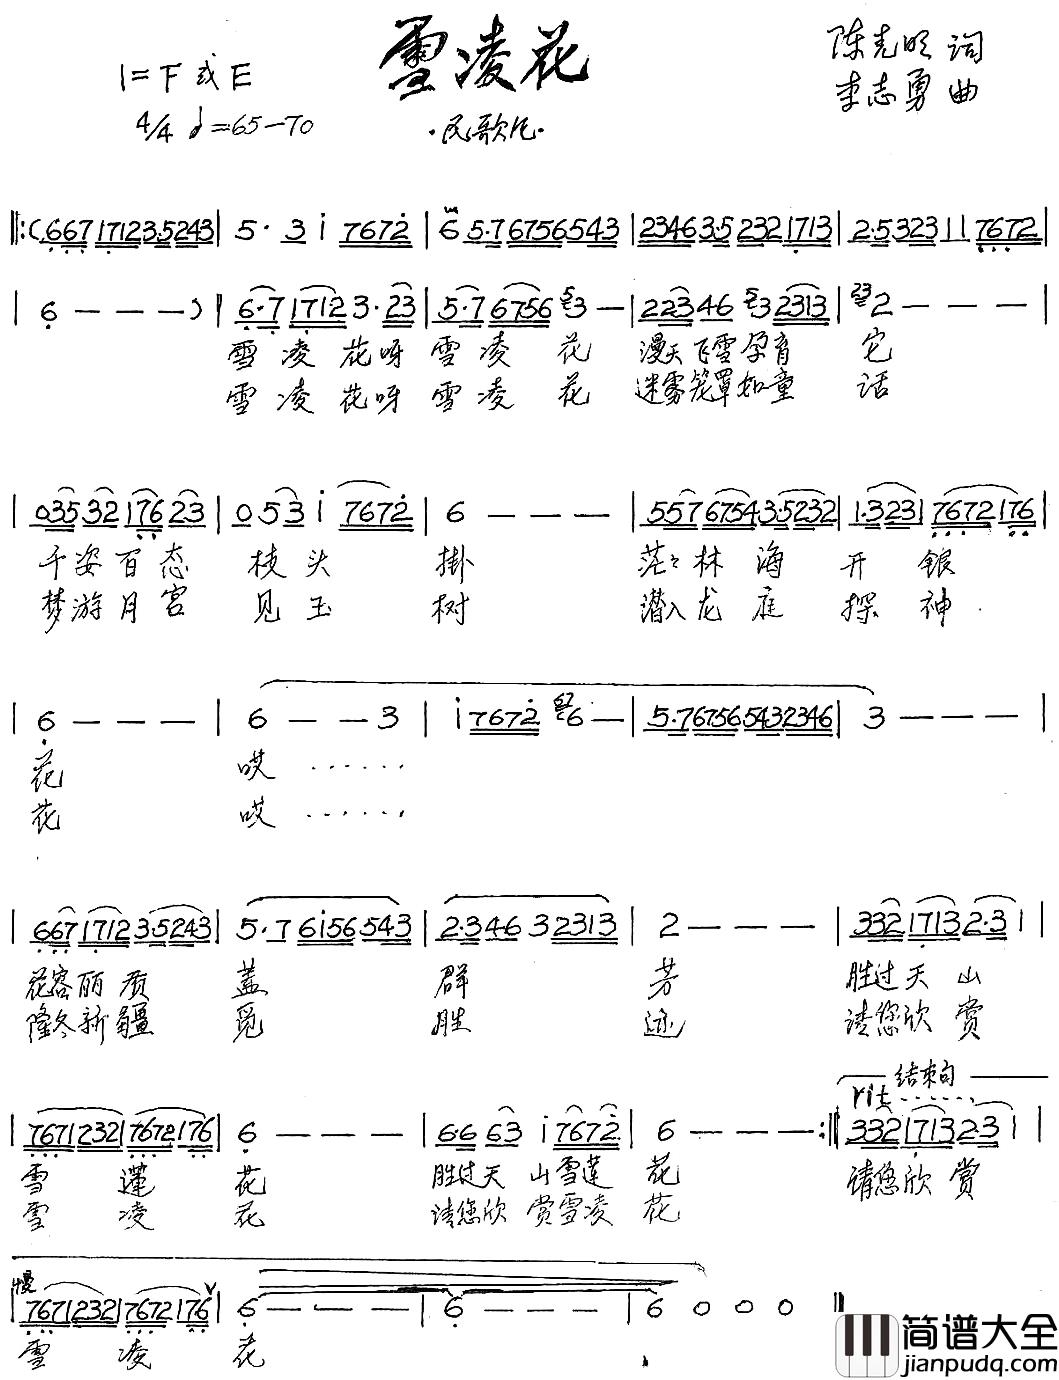 雪凌花
1=F或E
4/4 ♩=65—70
·民歌风·
陈克明 词
李志勇 曲
‖:(667 17123·5243 | 5· 3 i 7672 | 6 5·76756543 | 23463·5 232 1713 | 2·5323 11 7672 |
| 6 — — — ) | 6·7 1712 3·23 | 5·7 6756 53 — | 223 46 53 2313 | 232 — — — |
雪凌花呀 雪凌花 漫天飞雪孕育它
雪凌花呀 雪凌花 迷雾笼罩如童话
| 035 32 176 23 | 053 i 7672 | 6 — — — | 557 6754 3·5232 | 1·323 7672 176 |
千姿百态 枝头 掛 茫々林海 开银
梦游月宫 见玉 树 潜入龙庭 探神
| 6 — — — | 6 — — 3 | i 7672 676 — | 5·76756 5432346 | 3 — — — |
花 哎······
花 哎······
| 667 1712 3·5243 | 5·7 6i56 543 | 2·346 3 2313 | 2 — — — | 332 1713 2·3 1 |
花容丽质 盖 群 芳 胜过天山
隆冬新疆 觅 胜 迹 请您欣赏
结束句
rit······
| 7671 232 17672 176 | 6 — — — | 66 63 i 7672 | 6 — — — :‖ 332 1713 2·3 1 |
雪莲花 胜过天山雪莲花 请您欣赏
雪凌花 请您欣赏雪凌花
慢
| 7671 232 17672 176 | 6 — — — | 6 — — — | 6 0 0 0 ‖
雪凌花
简谱大全
jianpudq.com